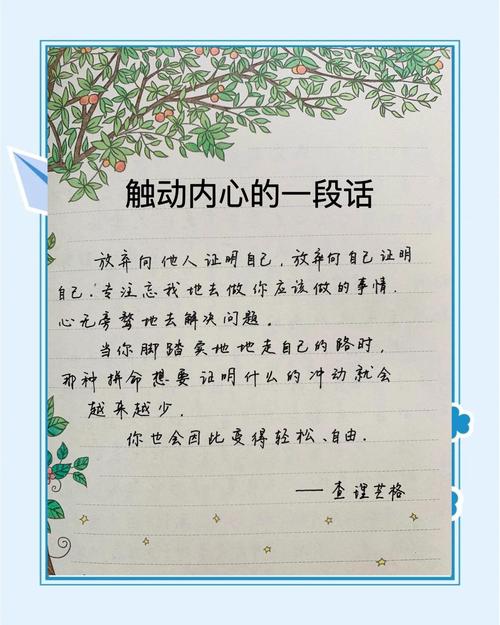 触动内心的一段话
放弃向他人证明自己，放弃向自己证明
自己.专注忘我地去做你应该做的事情.
心无旁骛地去解决问题。
当你脚踏实地地走自己的路时，
那种拼命想要证明什么的冲动就会
越来越少.
你也会因此变得轻松、自由.
——查理芒格